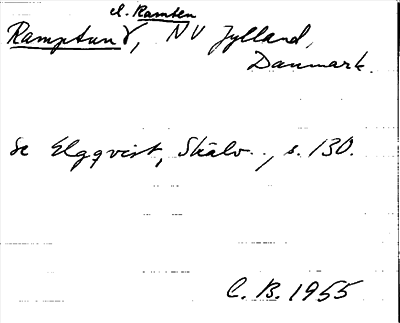 el. Ramten
Ramptun ɣ, NV Jylland,
Danmark.
Se Elgqvist, Skälv.., s. 130.
C. B. 1955